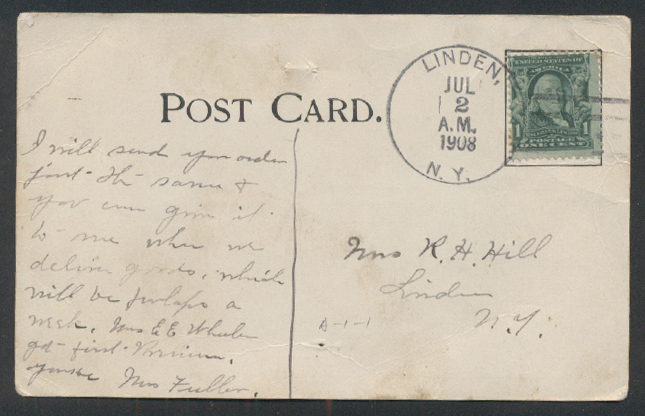 POST CARD.
LINDEN,
JUL
12
A.M.
1908
N.Y.
UNITED STATES OF
AMERICA
1 1
ONE CENT
I will send your order
just the same &
you can give it
to me when we
deliver goods, which
will be perhaps a
week. Mrs E E Wheeler
got first Premium.
Mrs Fuller.
Mrs R. H. Hill
Linden
N.Y.
A-1-1